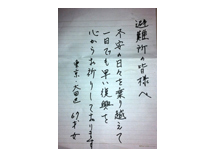 避難所の皆様へ
不安の日々を乗り越えて
一日でも早い復興を
心からお祈りしております
東京・大田区 67才 女